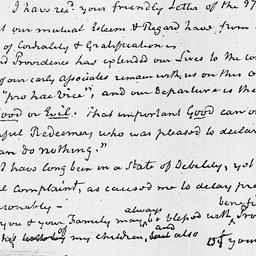 I have rec.d your friendly Letter of the 27
our mutual Esteem & Regard have from
of Cordiality & Gratification
Providence has extended our Lives to the
of our early Associates remain with us on this
"pro hac vice"; and our Departure is the
Good or Evil. That important Good can
Redeemer, who was pleased to declar
an do nothing."
I have long been in a State of Debility, yet
l Complaint, as caused me to delay
sonably —
always
you & your Family may be blessed with
and
my children, but also